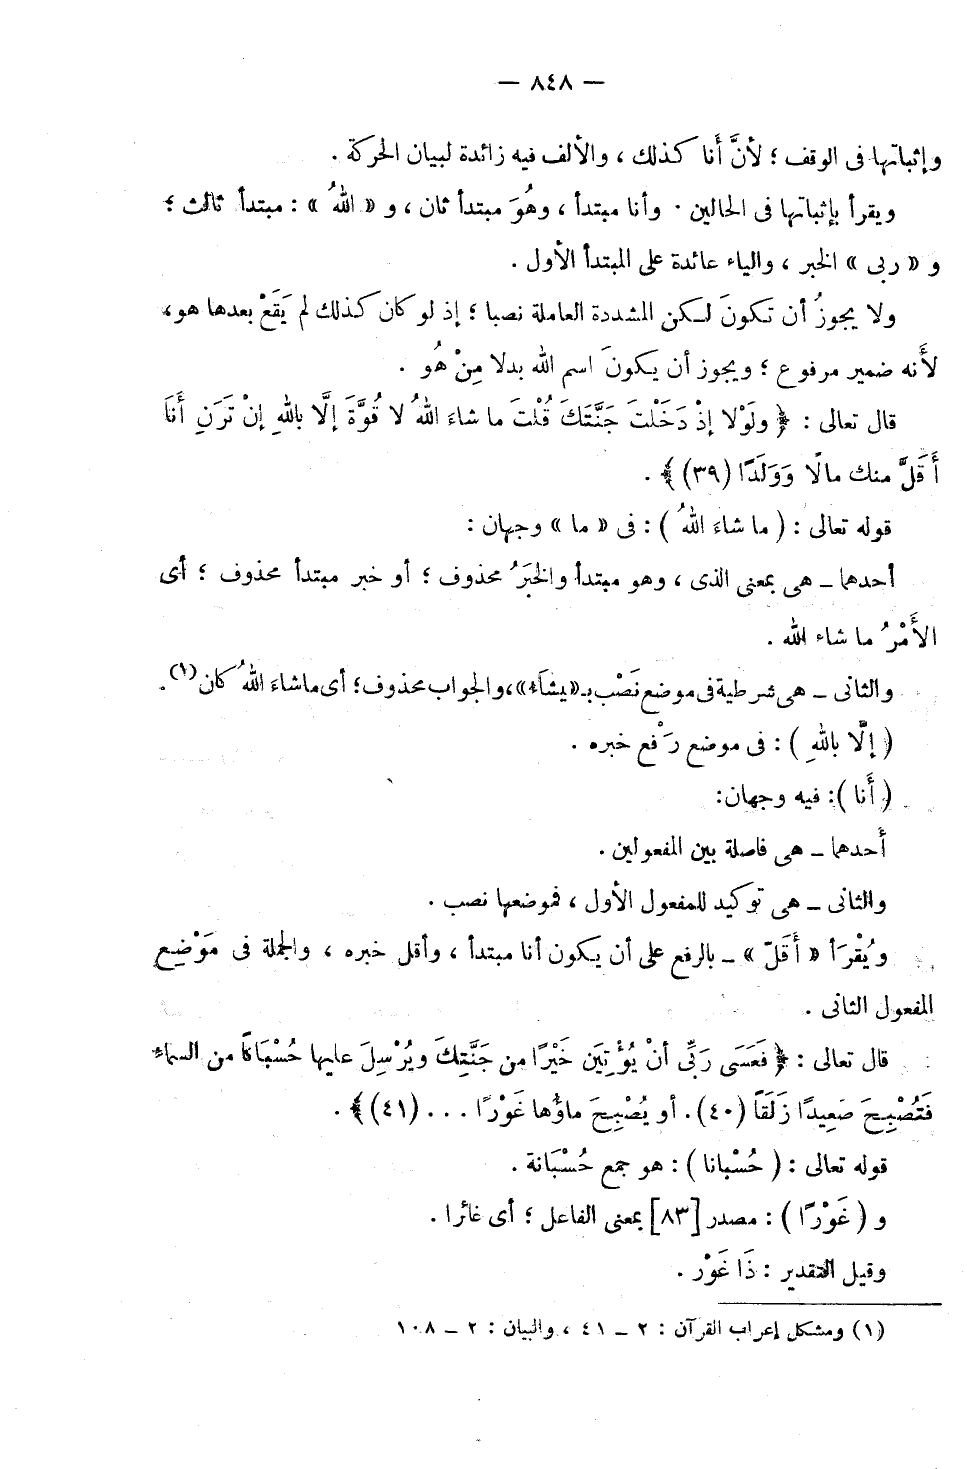 — ٨٤٨ —
وإثباتها فى الوقف ؛ لأنَّ أَنا كذلك ، والألف فيه زائدة لبيان الحركة .
ويقرأ بإثباتها فى الحالين · وأنا مبتدأ ، وهُوَ مبتدأ ثان ، و « اللهُ » : مبتدأ ثالث ؛
و « ربى » الخبر ، والياء عائدة على المبتدأ الأول .
ولا يجوزُ أن تكونَ لـكن المشددة العاملة نصبا ؛ إذ لو كان كذلك لم يَقَعْ بعدها هو ،
لأَنه ضمير مرفوع ؛ ويجوز أن يكونَ اسم الله بدلا مِنْ هُو .
قال تعالى : ﴿ ولَوْلا إذْ دَخَلْتَ جَنَّتَكَ قُلْتَ ما شاءَ اللهُ لا قُوَّةَ إلَّا باللهِ إنْ تَرَنِ أَنَا
أَقَلَّ منك مالًا وَوَلَدًا (٣٩) ﴾ .
قوله تعالى : ( ما شاءَ اللهُ ) : فى « ما » وجهان :
أحدهما ـ هى بمعنى الذى ، وهو مبتدأ والخبَرُ محذوف ؛ أو خبر مبتدأ محذوف ؛ أى
الأَمْرُ ما شاء الله .
والثانى ـ هى شرطية فى موضع نَصْب بـ «يشاء» ، والجواب محذوف ؛ أى ما شاءَ اللهُ كان (١) .
( إلَّا باللهِ ) : فى موضع رَفْع خبره .
( أَنا ) : فيه وجهان :
أَحدهما ـ هى فاصلة بين المفعولين .
والثانى ـ هى توكيد للمفعول الأول ، فموضعها نصب .
ويُقْرَأ « أَقلّ » ـ بالرفع على أن يكون أنا مبتدأ ، وأقل خبره ، والجملة فى مَوْضِع
المفعول الثانى .
قال تعالى : ﴿ فَعَسَى رَبِّى أنْ يُؤْتِيَن خَيْرًا من جَنَّتِكَ ويُرْسِلَ عليها حُسْبَانًا من السماء
فَتُصْبِحَ صَعِيدًا زَلَقًا (٤٠) . أو يُصْبِحَ ماؤُها غَوْرًا . . . (٤١) ﴾ .
قوله تعالى : ( حُسْبانا ) : هو جمع حُسْبَانة .
و ( غَوْرًا ) : مصدر [٨٣] بمعنى الفاعل ؛ أى غائرا .
وقيل التقدير : ذَا غَوْر .
(١) ومشكل إعراب القرآن : ٢ ـ ٤١ ، والبيان : ٢ ـ ١٠٨